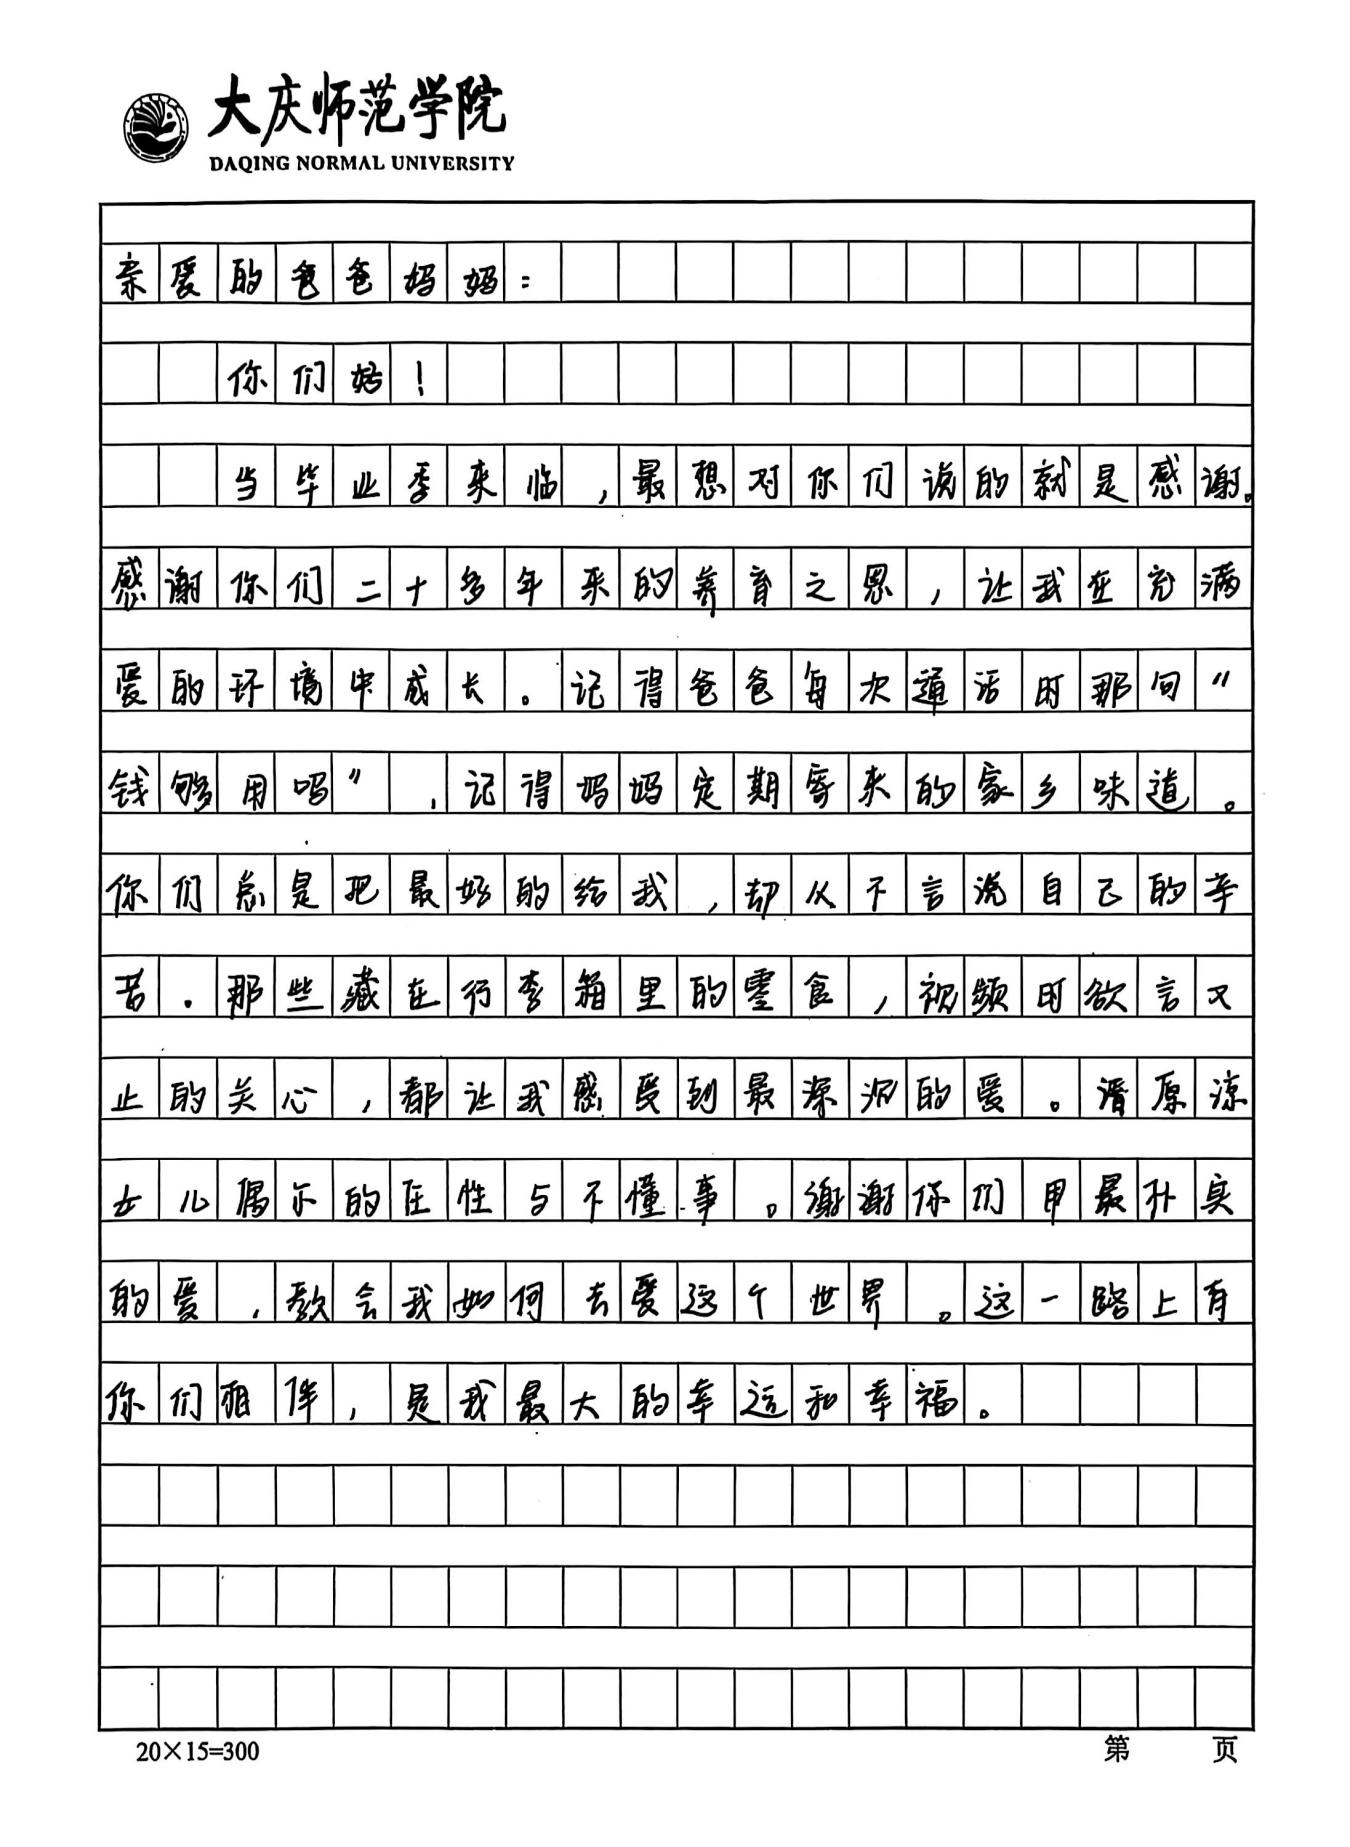 大庆师范学院
DAQING NORMAL UNIVERSITY
亲爱的爸爸妈妈：
你们好！
当毕业季来临，最想对你们说的就是感谢。
感谢你们二十多年来的养育之恩，让我在充满
爱的环境中成长。记得爸爸每次通话时那句“
钱够用吗”，记得妈妈定期寄来的家乡味道。
你们总是把最好的给我，却从不言说自己的辛
苦。那些藏在行李箱里的零食，视频时欲言又
止的关心，都让我感受到最深沉的爱。请原谅
女儿偶尔的任性与不懂事。谢谢你们用最朴实
的爱，教会我如何去爱这个世界。这一路上有
你们相伴，是我最大的幸运和幸福。
20×15=300
第 页